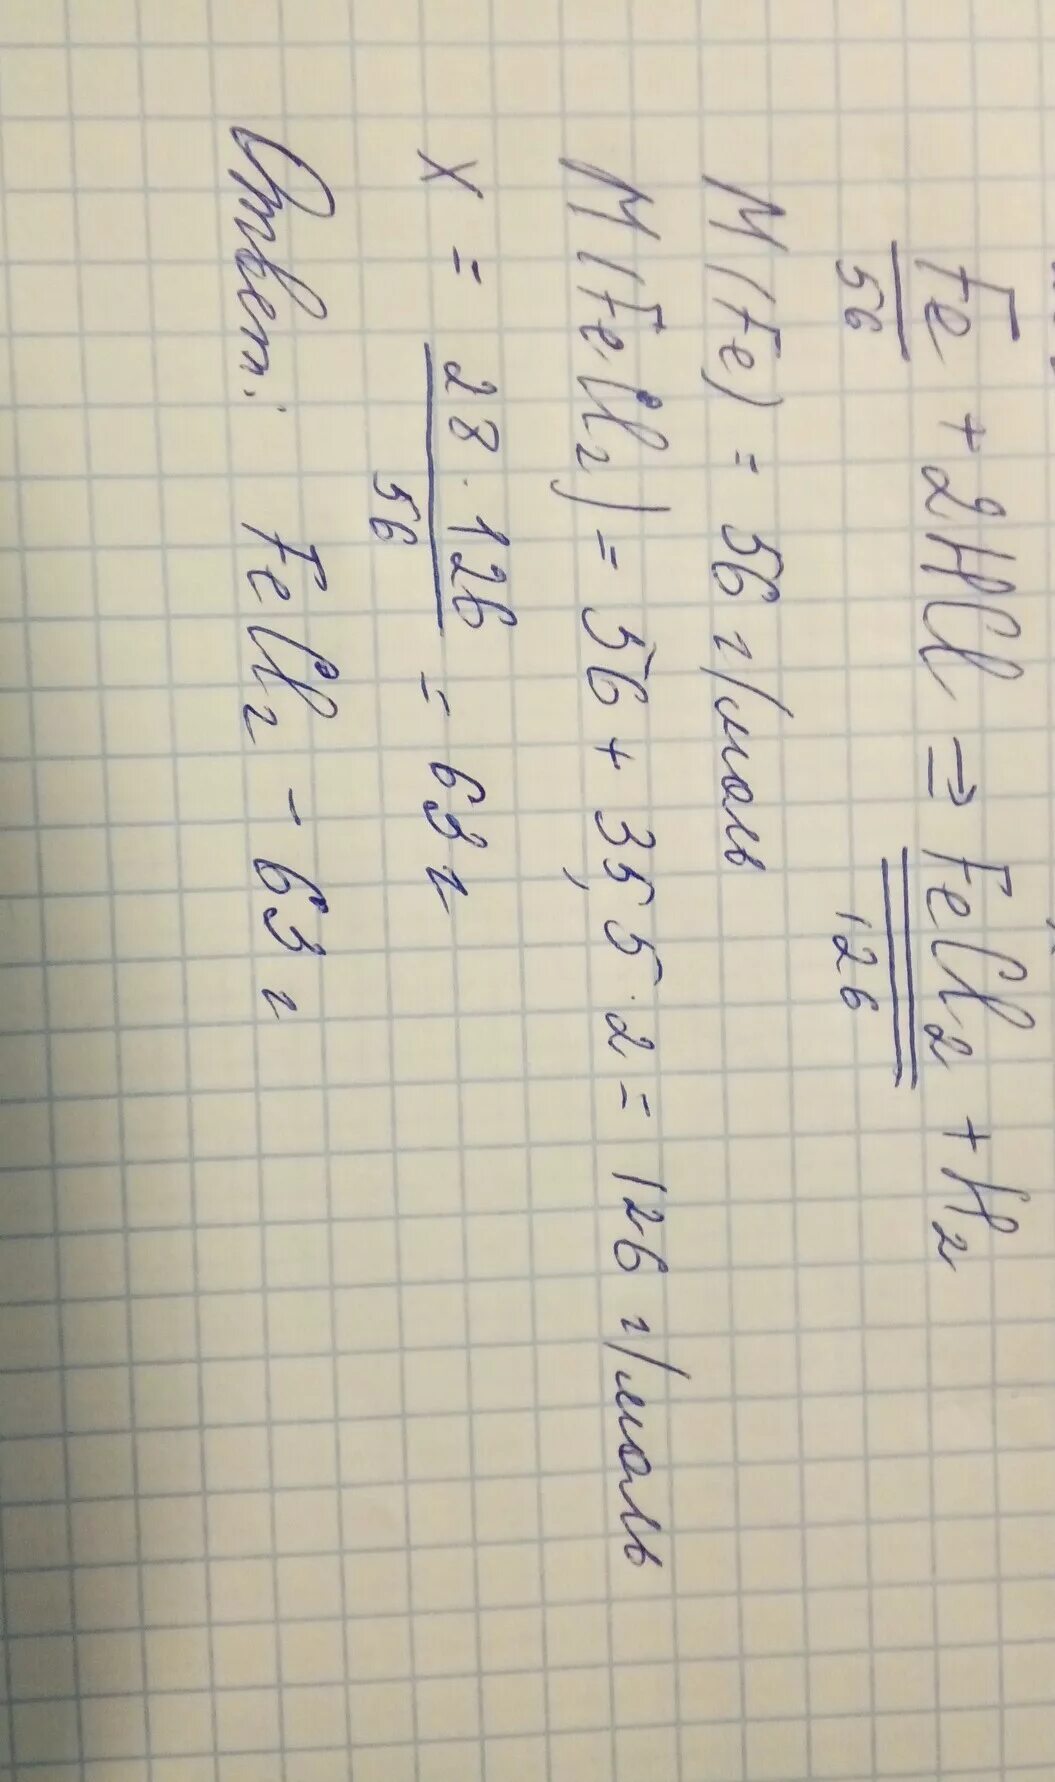 Fe + 2HCl ⇒ FeCl₂ + H₂
56 126
M(Fe) = 56 г/моль
M(FeCl₂) = 56 + 35,5 · 2 = 126 г/моль
x = 28 · 126 / 56 = 63 г
Ответ: FeCl₂ - 63 г